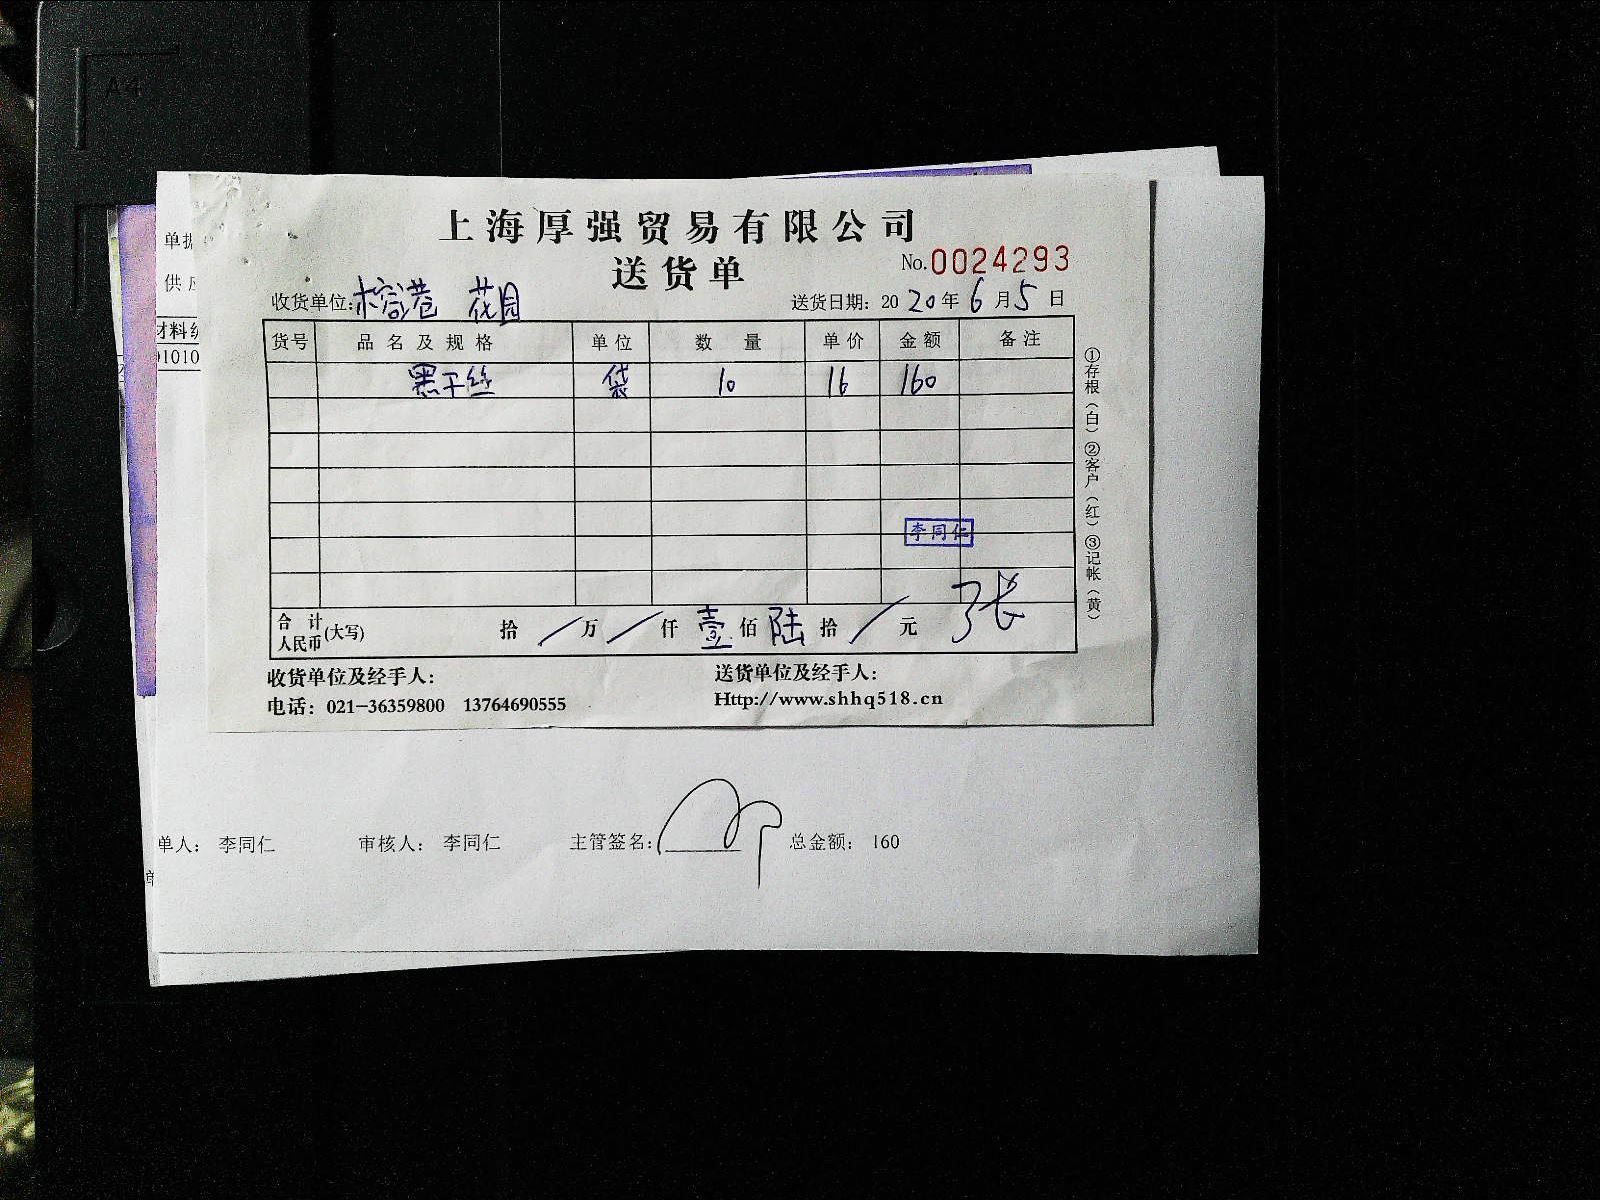 A4
单据
供应
材料编
01010
上海厚强贸易有限公司
送货单
No.0024293
收货单位:榕港 花园
送货日期: 2020年6月5日
货号 品名及规格 单位 数量 单价 金额 备注
黑干丝 袋 10 16 160
李同仁
合计人民币(大写) 拾/万/仟壹佰陆拾/元
收货单位及经手人:
送货单位及经手人:
电话: 021-36359800 13764690555
Http://www.shhq518.cn
①存根(白)②客户(红)③记帐(黄)
单人: 李同仁 审核人: 李同仁 主管签名: 总金额: 160